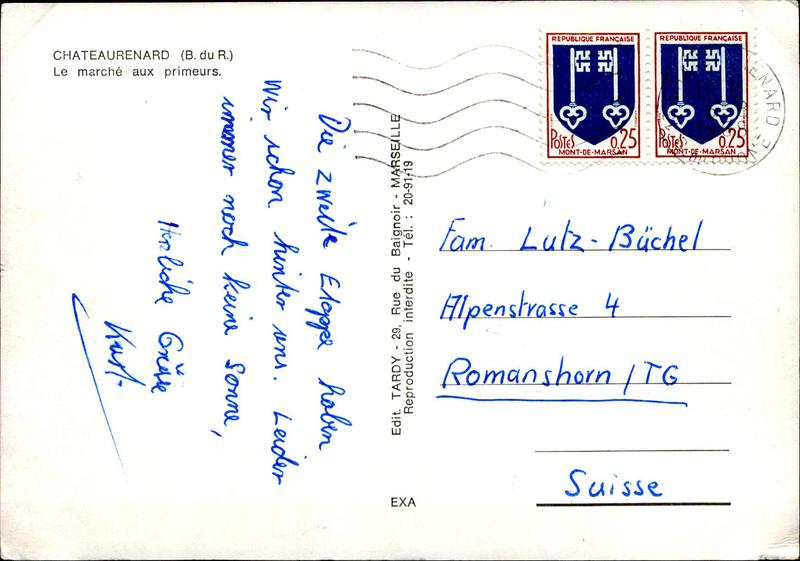 CHATEAURENARD (B. du R.)
Le marché aux primeurs.
Die zweite Etappe haben
Wir schon hinter uns. Leider
immer noch keine Sonne,
Herzliche Grüsse
Kurt
Edit. TARDY - 29, Rue du Baignoir - MARSEILLE
Reproduction interdite - Tél. : 20-91-19
EXA
REPUBLIQUE FRANÇAISE
POSTES 0,25
MONT-DE-MARSAN
REPUBLIQUE FRANÇAISE
POSTES 0,25
MONT-DE-MARSAN
Fam. Lutz-Büchel
Alpenstrasse 4
Romanshorn / TG
Suisse